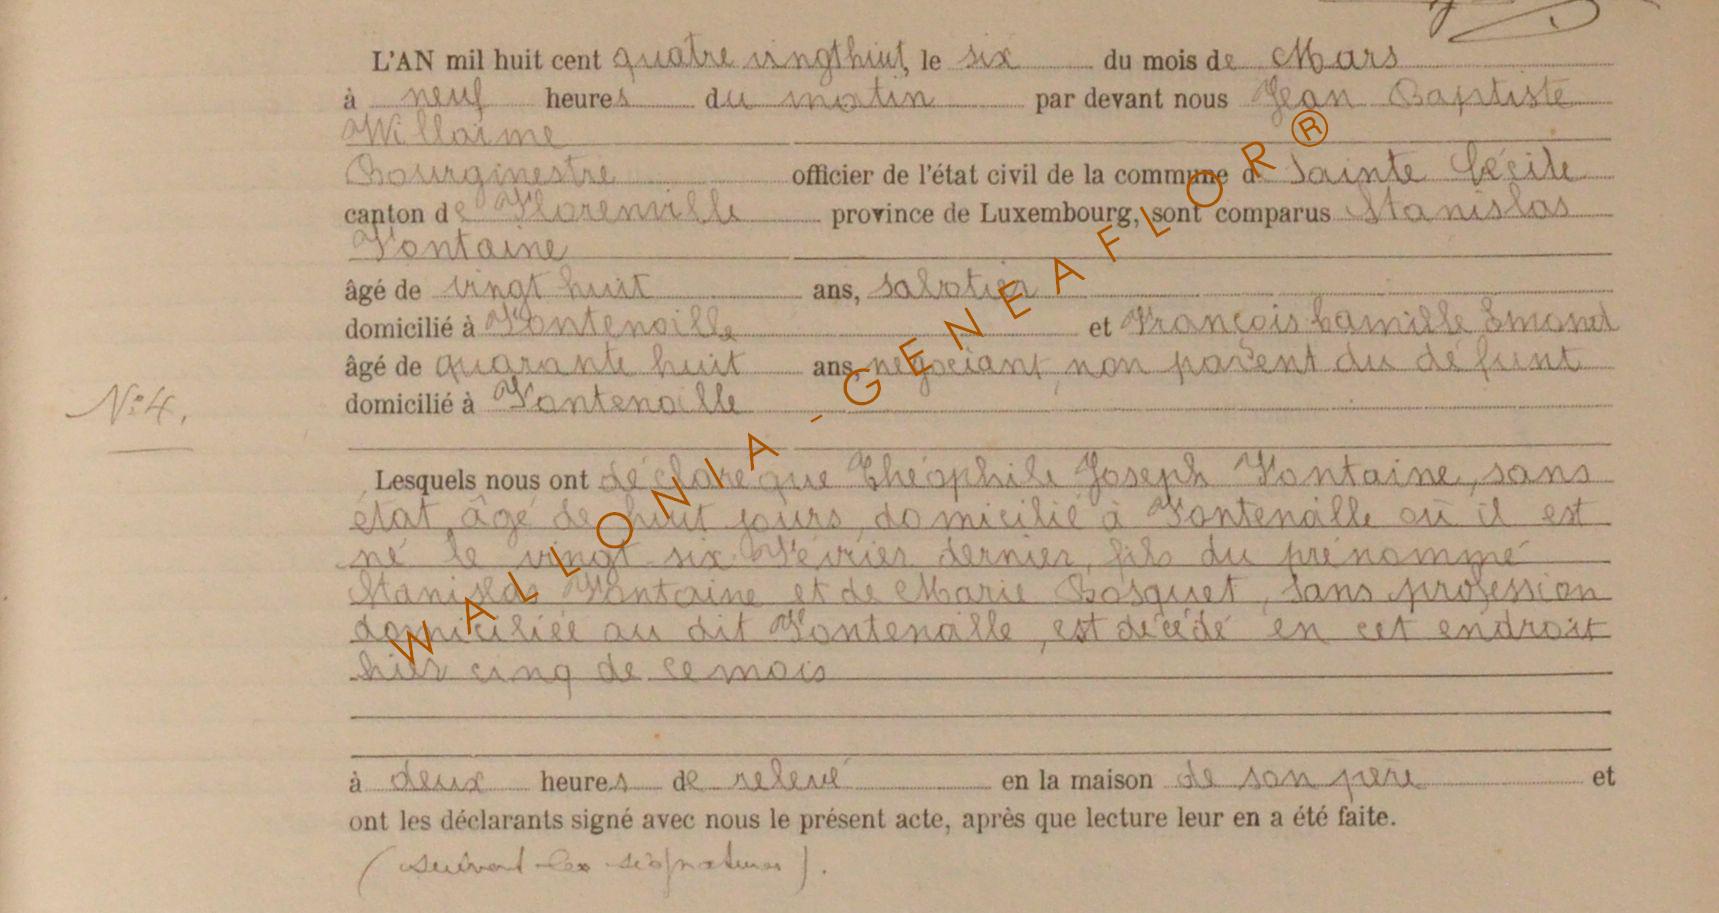 L'AN mil huit cent quatre vingt huit, le six du mois de Mars
à neuf heures du matin par devant nous Jean Baptiste
Willaime
Bourgmestre officier de l'état civil de la commune de Sainte Cécile
canton de Florenville province de Luxembourg, sont comparus Stanislas
Fontaine
âgé de vingt huit ans, sabotier
domicilié à Fontenoille et François Camille Emond
âgé de quarante huit ans, négociant, non parent du défunt
domicilié à Fontenoille
N° 4.
Lesquels nous ont déclaré que Théophile Joseph Fontaine, sans
état, âgé de huit jours, domicilié à Fontenoille où il est
né le vingt six Février dernier, fils du prénommé
Stanislas Fontaine et de Marie Bosquet, sans profession
domiciliée au dit Fontenoille, est décédé en cet endroit
hier cinq de ce mois
à deux heures de relevé en la maison de son père et
ont les déclarants signé avec nous le présent acte, après que lecture leur en a été faite.
(suivent les signatures).
WALLONIA-GENEAFLOR®